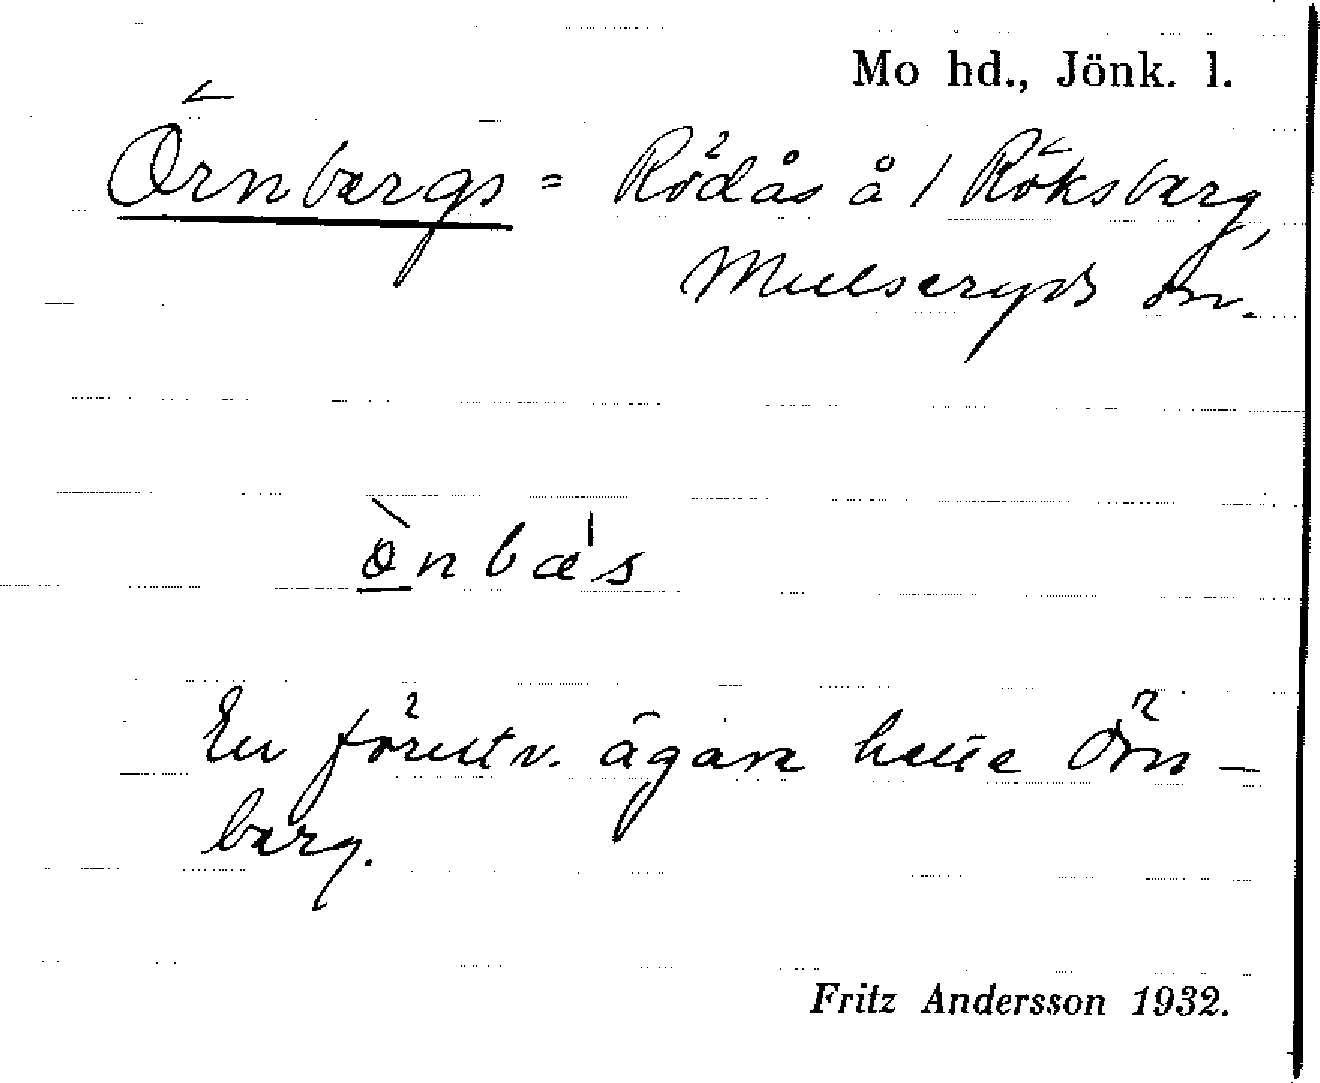 Mo hd., Jönk. l.
Örnbergs = Rödås å / Röksberg,
Mulseryds sn.
ònbæ's
En förutv. ägare hette Örn-
berg.
Fritz Andersson 1932.